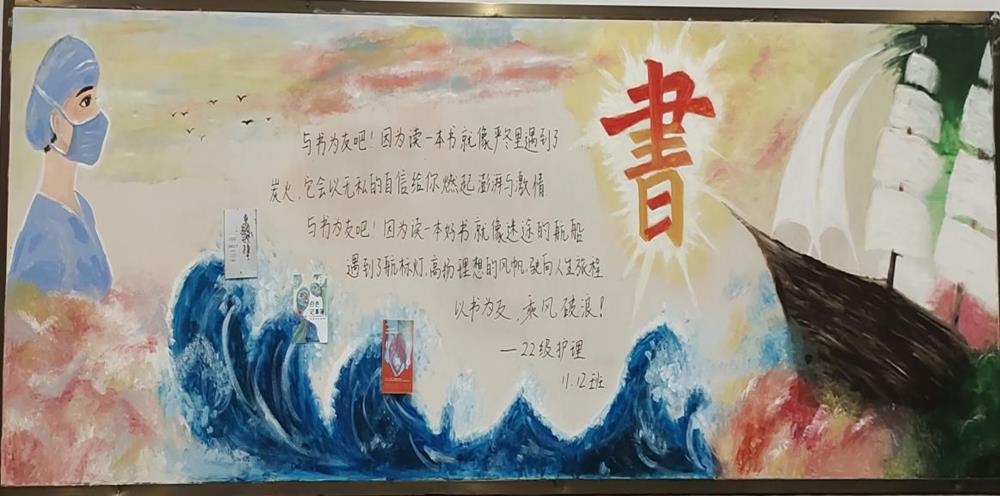 書
与书为友吧！因为读一本书就像严冬里遇到了
炭火，它会以无私的自信给你燃起澎湃与激情
与书为友吧！因为读一本好书就像迷途的航船
遇到了航标灯，高扬理想的风帆，驶向人生旅程
以书为友，乘风破浪！
—22级护理
11.12班
白色
记事簿